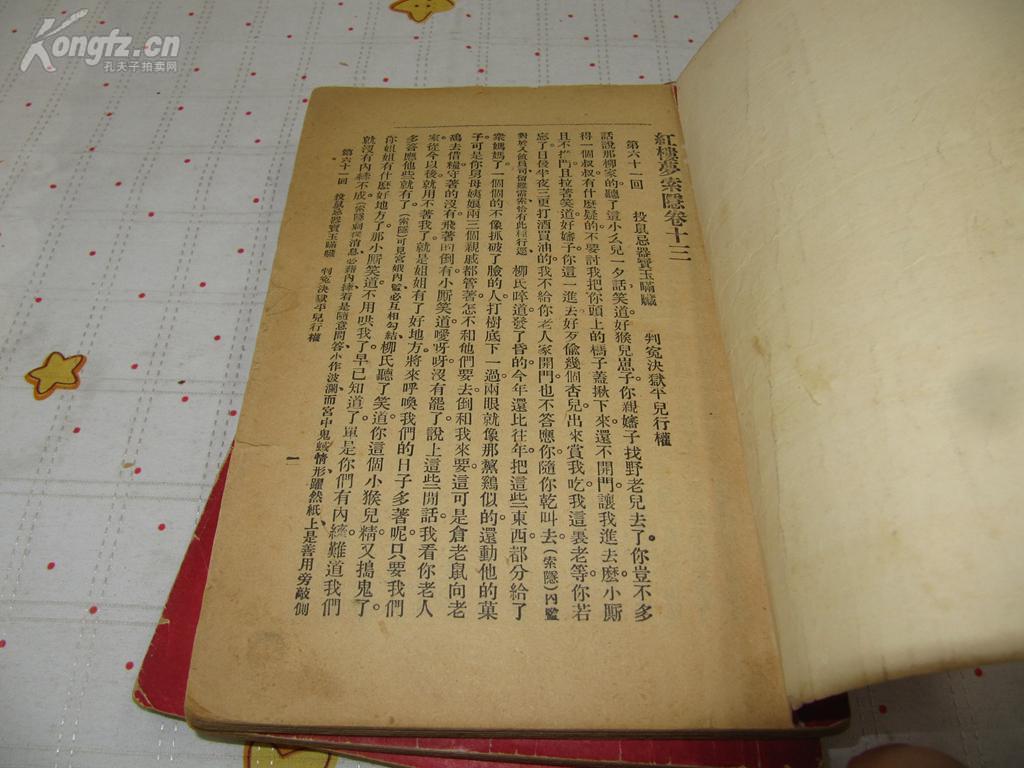 Kongfz.cn
孔夫子拍卖网
紅樓夢索隱卷十三
第六十一回 投鼠忌器寶玉瞞贓 判冤決獄平兒行權
話說那柳家的聽了這小么兒一夕話笑道好猴兒崽子你親嬸子找野老兒去了你豈不多
得一個叔叔有什麼疑的不要討我把你頭上的榪子蓋揪下來還不開門讓我進去麼小廝
且不拉門且拉著笑道好嬸子你這一進去好歹偷幾個杏兒出來賞我吃我這裏老等你若
忘了日後半夜三更打酒買油的我不給你老人家開門也不答應你隨你乾叫去(索隱)內監
柳氏啐道發了昏的今年還比往年把這些東西都分給了
衆媽媽了一個個的不像抓破了臉的人打樹底下一過兩眼就像那黧鷄似的還動他的菓
子可是你舅母姨娘兩三個親戚都管著怎不和他們要去倒和我來要這可是倉老鼠向老
鴰去借糧守著的沒有飛著的倒有小廝笑道噯呀呀沒有罷了說上這些閒話我看你老人
家從今以後就用不著我了就是姐姐有了好地方將來呼喚我們的日子多著呢只要我們
多答應他些就有了(索隱)可見宮娥內監必互相勾結柳氏聽了笑道你這個小猴兒精又搗鬼了
你姐姐有什麼好地方了那小廝笑道不用哄我了早已知道了單是你們有內縴難道我們
就沒有內縴不成(索隱)消息必藉內縴若是隨意問答小作波瀾而宮中鬼蜮情形躍然紙上是善用旁敲側
第六十一回 投鼠忌器寶玉瞞贓 判冤決獄平兒行權
一